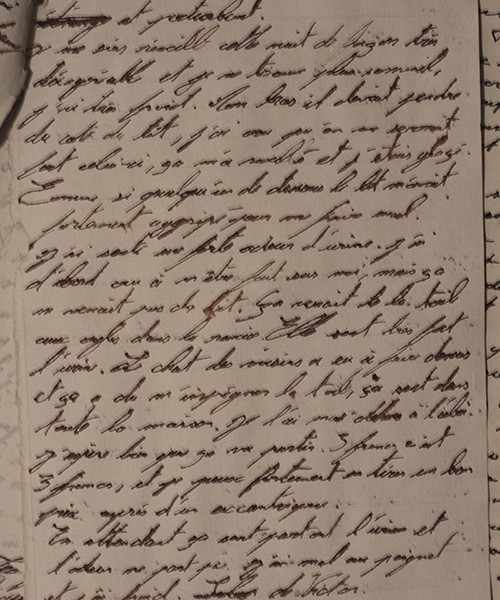 et
Je me suis réveillé cette nuit de façon très
désagréable et je ne trouve plus sommeil,
j'ai très froid. Mon bras il devait pendre
du coté du lit, j'ai cru qu'on me
fort celui-ci, ça m'a réveillé et j'étais glacé.
Comme si quelqu'un de dessous le lit m'avait
fortement aggripé pour me faire mal.
J'ai senti une forte odeur d'urine. J'ai
d'abord cru à m'être fait sur moi, mais ça
ne venait pas du lit. Ça venait de la toile
aux ongles dans le novice. Elle sent très fort
l'urine. Le chat des voisins a eu à faire dessus
et ça a du m'imprégner la toile, ça sent dans
toute la maison. Je l'ai mise à l'abri.
J'espère bien que ça va partir. 3 francs c'est
3 francs, et je peux fortement en tirer un bon
prix auprès d'un excentrique.
En attendant ça sent partout l'urine et
l'odeur ne part pas. J'ai mal au poignet
et j'ai froid. de Victor.